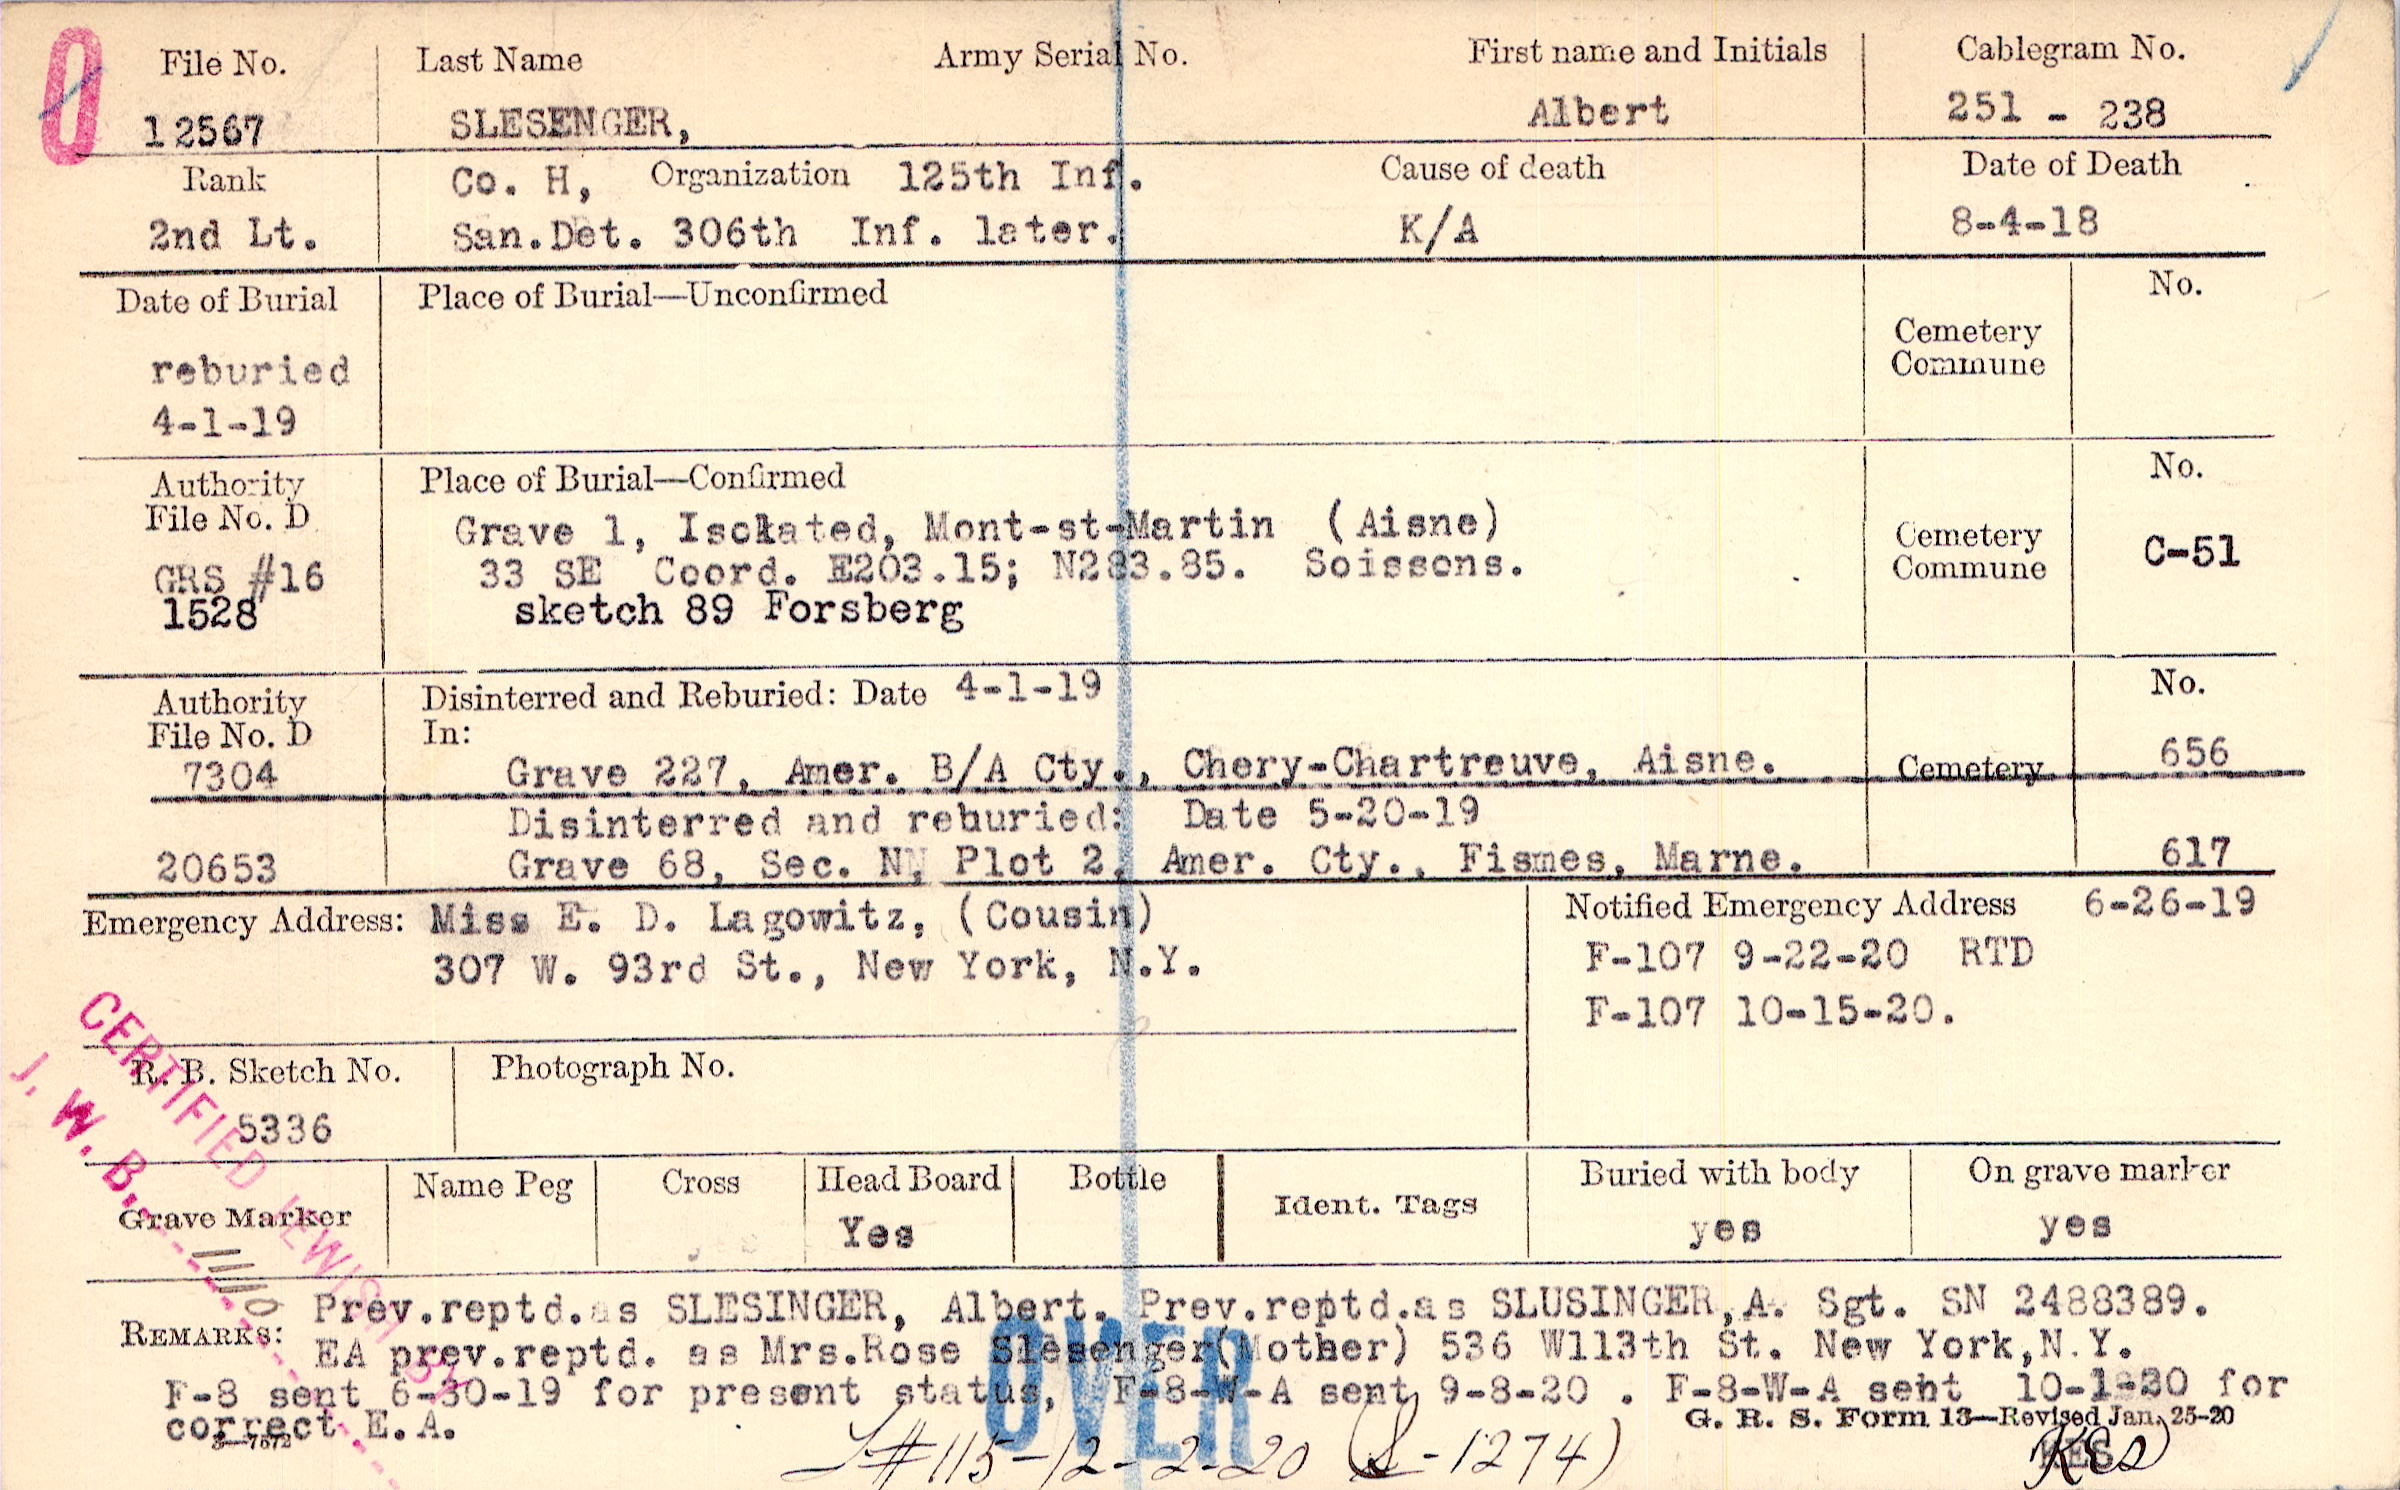 0
File No. Last Name Army Serial No. First name and Initials Cablegram No.
12567 SLESENGER, Albert 251 - 238
Rank Co. H, Organization 125th Inf. Cause of death Date of Death
2nd Lt. San.Det. 306th Inf. later. K/A 8-4-18
Date of Burial Place of Burial—Unconfirmed No.
Cemetery
Commune
reburied
4-1-19
Authority Place of Burial—Confirmed No.
File No. D Grave 1, Isolated, Mont-st-Martin (Aisne) Cemetery
GRS #16 33 SE Coord. E203.15; N283.85. Soissons. Commune C-51
1528 sketch 89 Forsberg
Authority Disinterred and Reburied: Date 4-1-19 No.
File No. D In:
7304 Grave 227, Amer. B/A Cty., Chery-Chartreuve, Aisne. Cemetery 656
Disinterred and reburied: Date 5-20-19
20653 Grave 68, Sec. N, Plot 2, Amer. Cty., Fismes, Marne. 617
Emergency Address: Miss E. D. Lagowitz, (Cousin) Notified Emergency Address 6-26-19
307 W. 93rd St., New York, N.Y. F-107 9-22-20 RTD
F-107 10-15-20.
CERTIFIED JEWISH BY
J. W. B.
R. B. Sketch No. Photograph No.
5336
Grave Marker Name Peg Cross Head Board Bottle Ident. Tags Buried with body On grave marker
yes Yes yes yes
REMARKS: Prev.reptd.as SLESINGER, Albert. Prev.reptd.as SLUSINGER,A. Sgt. SN 2488389.
EA prev.reptd. as Mrs.Rose Slesenger(Mother) 536 W113th St. New York,N.Y.
F-8 sent 6-30-19 for present status, F-8-W-A sent 9-8-20 . F-8-W-A sent 10-1-20 for
correct E.A.
3—7572
G. R. S. Form 13—Revised Jan. 25-20
OVER
#115-12-2-20 (S-1274)
KES